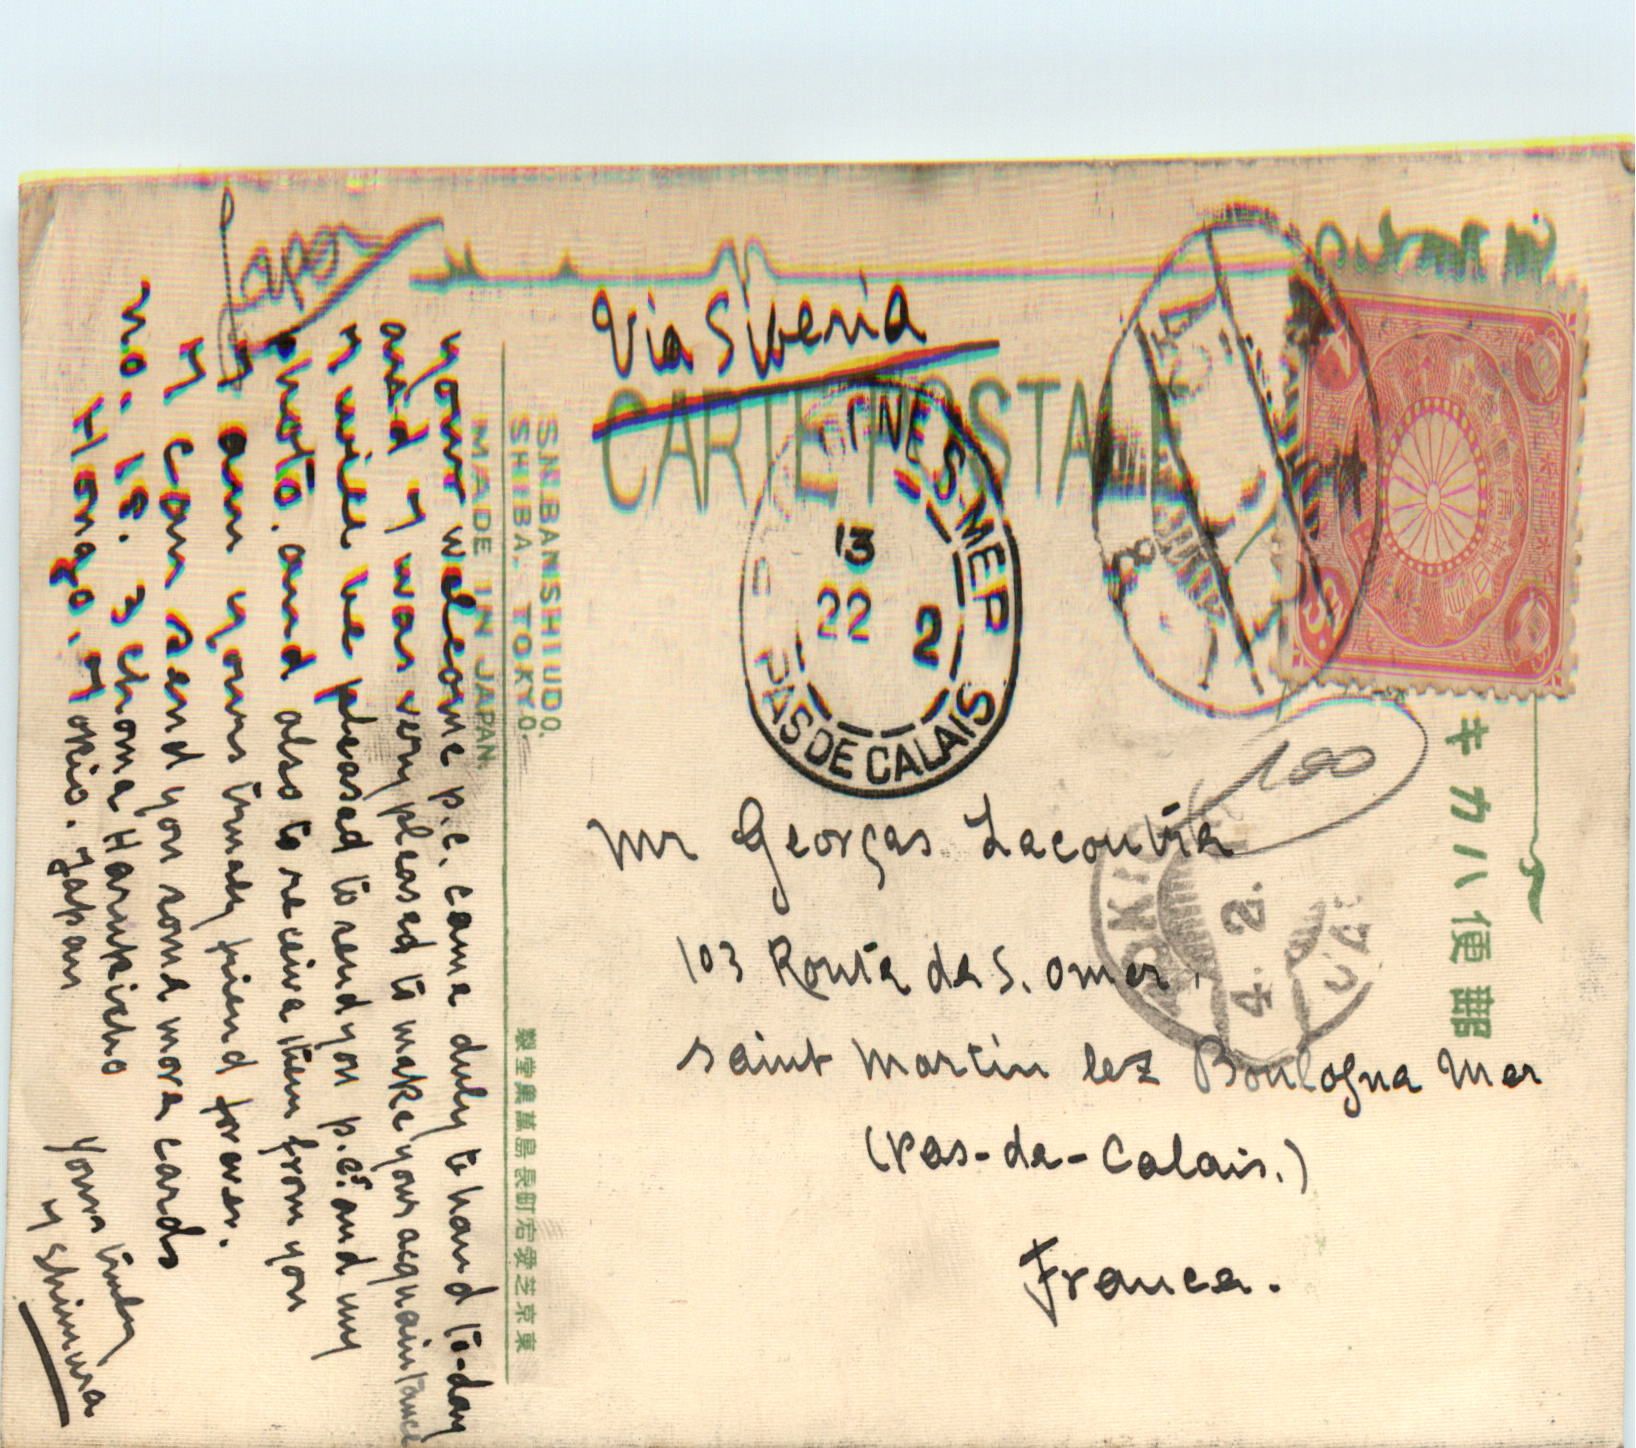 Japon
Your welcome p.c. came duly to hand to-day
and y was very pleased to make your acquaintance
y will be pleased to send you p.cs. and my
photo. and also to receive them from you
y am yours truely friend forever.
y can send you some more cards
no. 18. 3 chome Harukicho
Hongo. yokio. yapan
yours truley
y Shimura
S.N.BANSHIUDO.
SHIBA. TOKYO.
MADE IN JAPAN.
Via Siberia
CARTE POSTALE
S.MER
13
22 2
PAS DE CALAIS
キカハ便郵
100
4. 2.
Mr Georges Lacoutre
103 Route de S. Omer.
Saint Martin lez Boulogne Mer
(Pas-de-Calais.)
France.